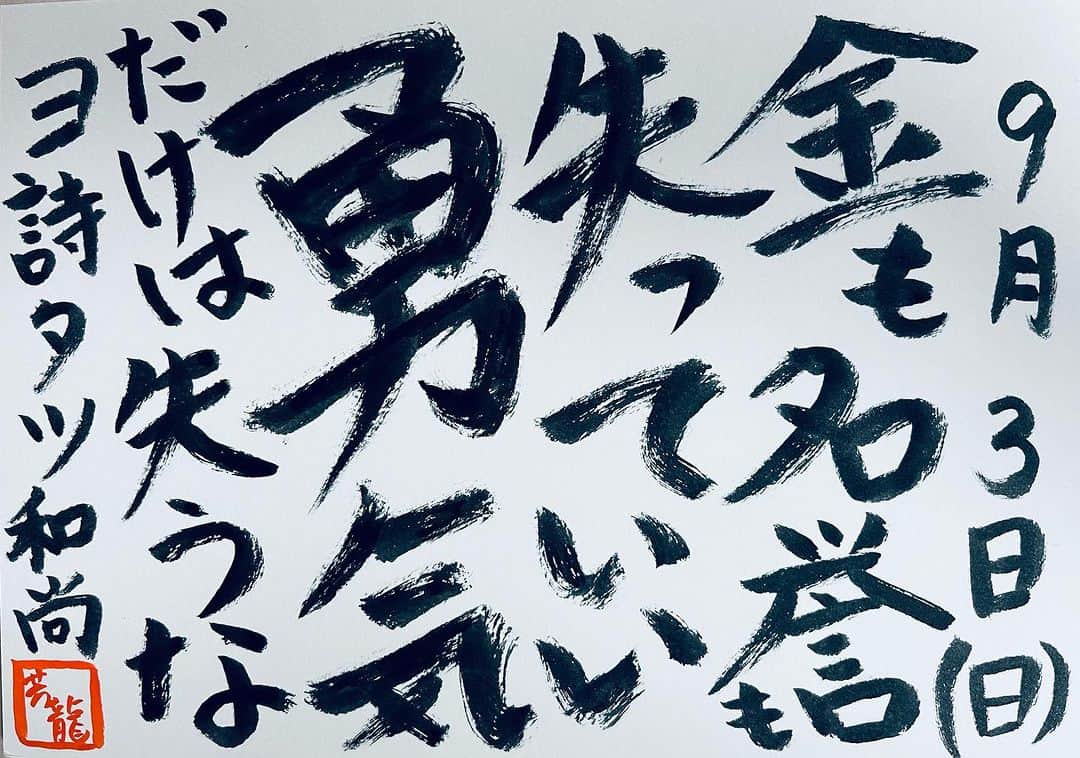 9月3日(日)
金も名誉も
失っていい
勇気
だけは失うな
ヨ詩タツ和尚